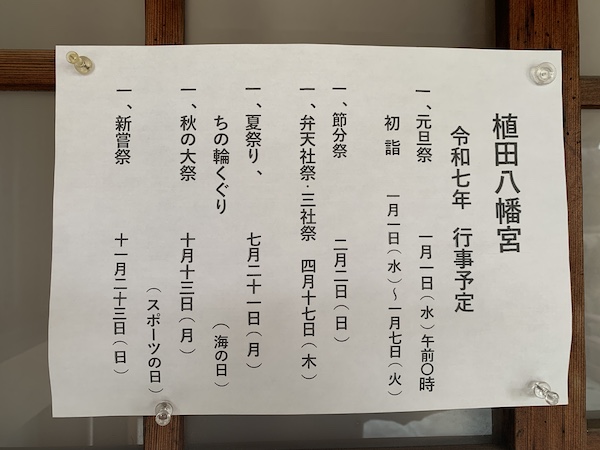 植田八幡宮
令和七年　行事予定
一、元旦祭　一月一日（水）午前〇時
初詣　一月一日（水）～一月七日（火）
一、節分祭　二月二日（日）
一、弁天社祭・三社祭　四月十七日（木）
一、夏祭り、　七月二十一日（月）
ちの輪くぐり　（海の日）
一、秋の大祭　十月十三日（月）
（スポーツの日）
一、新嘗祭　十一月二十三日（日）